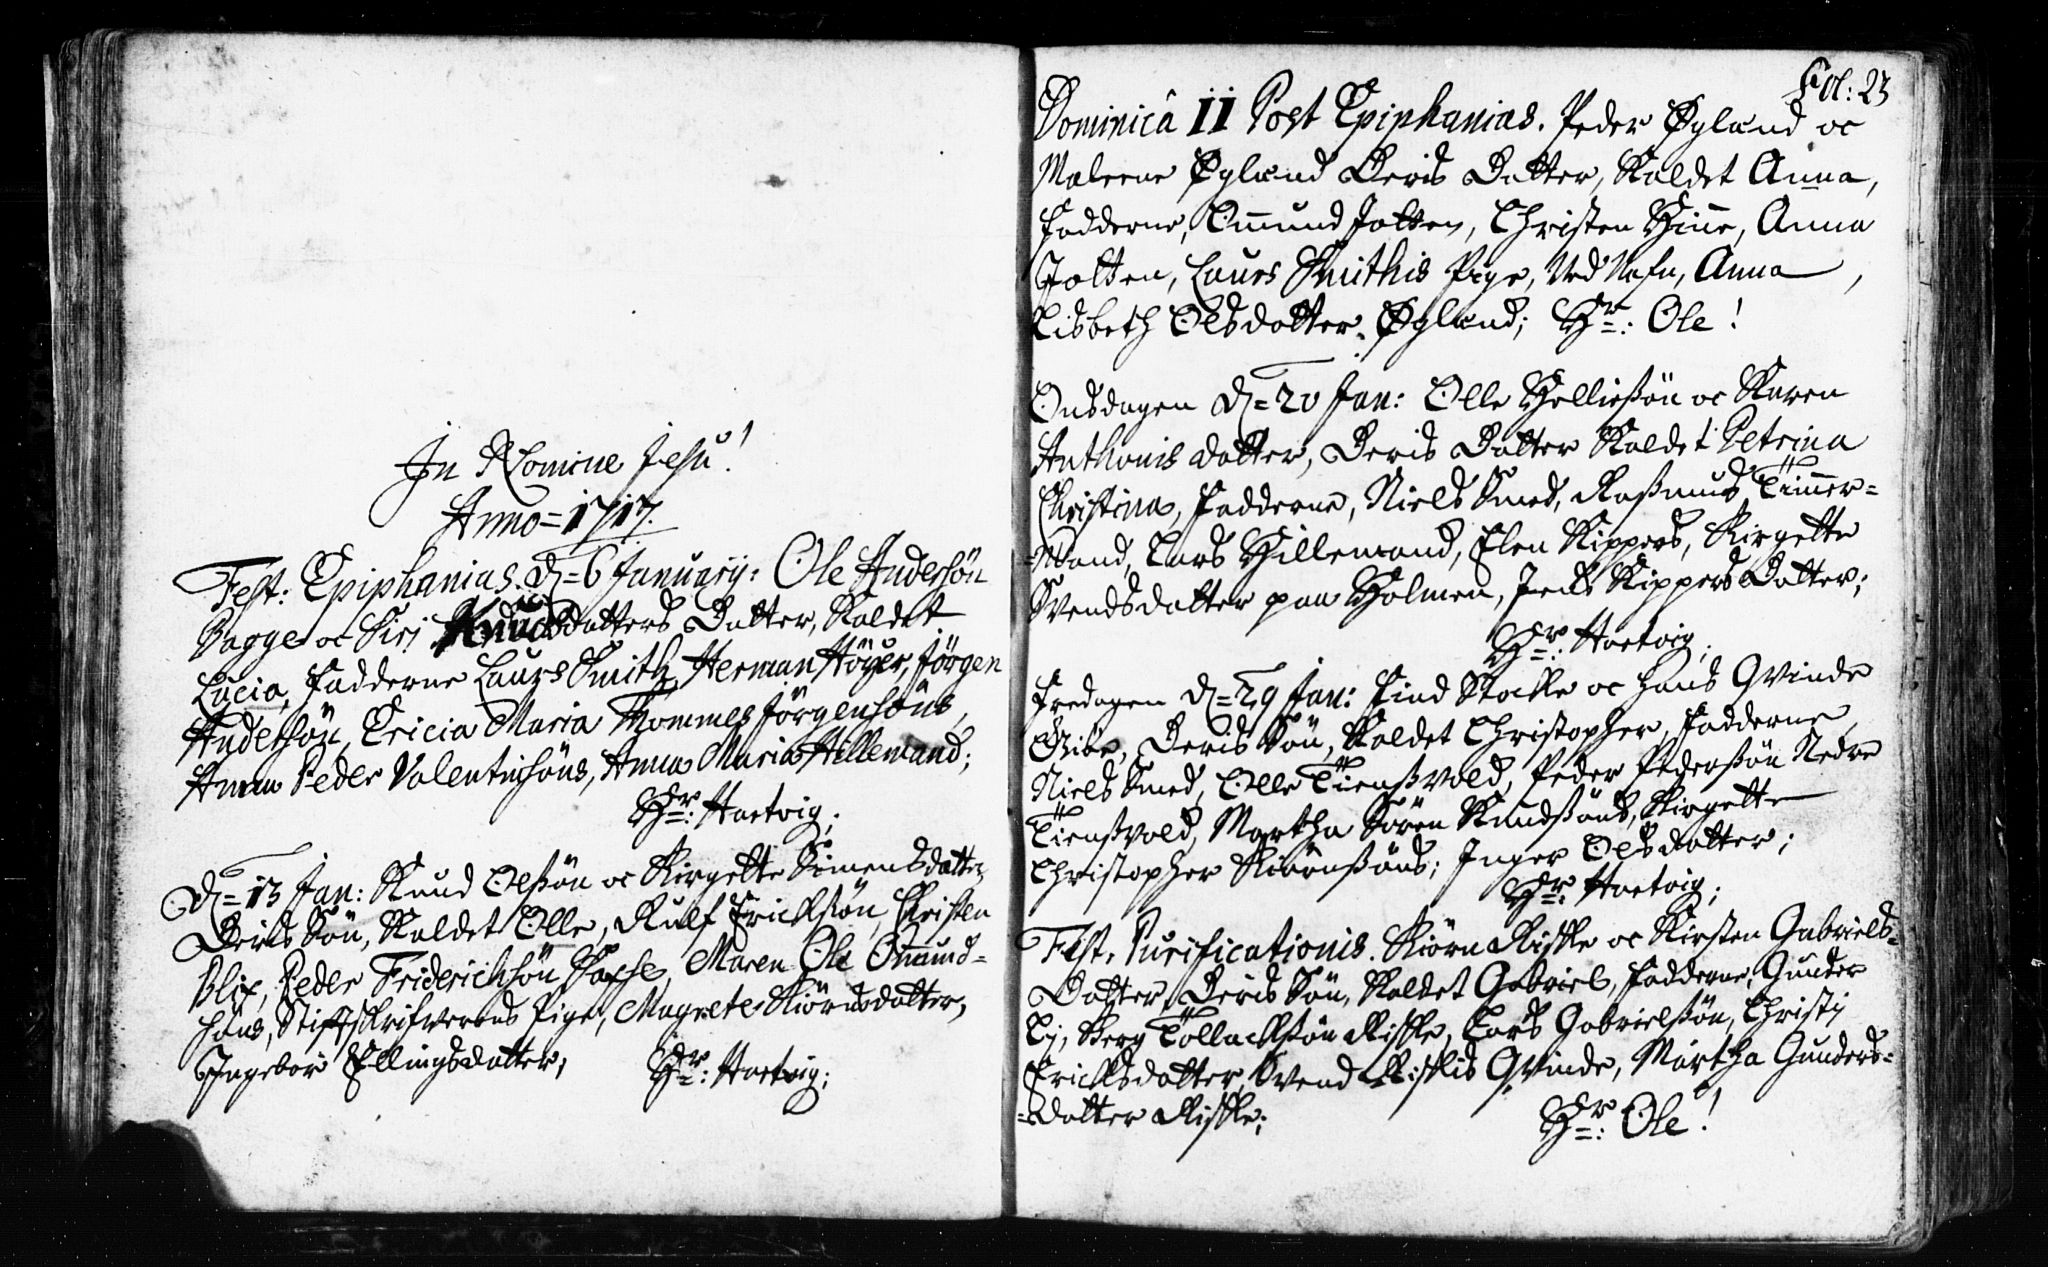 In Nomine Jesu!
Anno = 1717.
Fest: Epiphanias. D = 6 January: Ole Andersøn
Bagge oc Siri Knudsdatters Datter, Kaldet
Lucia, Fadderne Laurs Smith, Herman Höyer, Jörgen
Andersøn, Ericia Maria Thommes Jörgensøns,
Anna Peder Valentinsøns, Anna Maria Hillemand;
Hr: Hartvig;
D = 13 Jan: Knud Olssøn oc Birgette Simensdatter
Deris Søn, Kaldet Olle, Rulf Ericksøn, Christen
Blix, Peder Friderichsøn, Maren Ole Omund-
søns, Stiftskrifverens Pige, Magrete Biörnsdatter,
Ingebor Ellingsdatter; Hr: Hartvig;
Fol: 23
Dominicâ II Post Epiphanias. Peder Øgland oc
Maleene Øgland Deris Datter, Kaldet Anna,
Fadderne, Omund Jatten, Christen Hine, Anna
Jatten, Laurs Smithis Pige, Ved Nafn, Anna,
Lisbeth Olsdatter Øgland; Hr: Ole!
Onsdagen D = 20 Jan: Olle Helliessøn oc Karen
Anthonis datter, Deris Datter Kaldet Petrina
Christina, Fadderne, Niels Smed, Rasmus Timmer=
=Mand, Lars Hillemand, Elen Skippers, Birgette
Svendsdatter paa Holmen, Jens Skippers Datter;
Hr: Hartvig;
Fredagen D = 29 Jan: Find Stocke oc hans Qvinde
Deris Søn, Kaldet Christopher, Fadderne,
Niels Smed, Olle Tiensvold, Peder Pederssøn Nedre
Tiensvold, Martha Søren Knudssøns, Birgette
Christopher Biörnssøns; Inger Olsdatter;
Hr: Hartvig;
Fest. Purificationis. Biörn Riske oc Kirsten Gabriels-
Datter, Deris Søn, Kaldet Gabriel, Fadderne, Gunder
Li, Berg Tollackssøn Riske, Lars Gabrielssøn, Christi
Ericksdatter, Svend Riskis Qvinde, Martha Gunders=
=datter Riske; Hr: Ole!